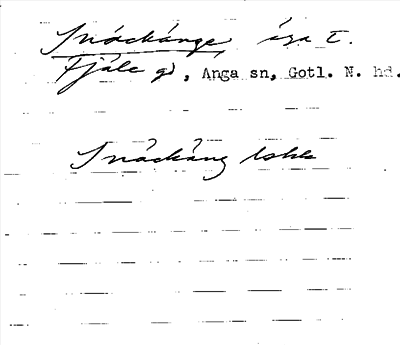 Snäckänge, äga t.
Fjäle gd, Anga sn, Gotl. N. hd.
Snäckäng lskk